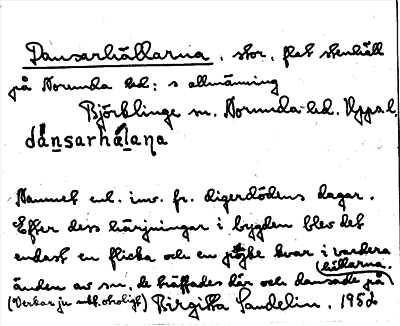 Dansarhällarna, stor, flat stenhäll
på Norunda hd:s allmänning
Björklinge sn. Norunda hd. Uppsl.
dánsarhä́lana
Namnet enl. inv. fr. digerdödens dagar.
Efter dess härjningar i bygden blev det
endast en flicka och en pojke kvar i vardera
änden av sn, de träffades där och dansade på hällarna.
(Verkar ju otroligt) Birgitta Sandelin. 1952